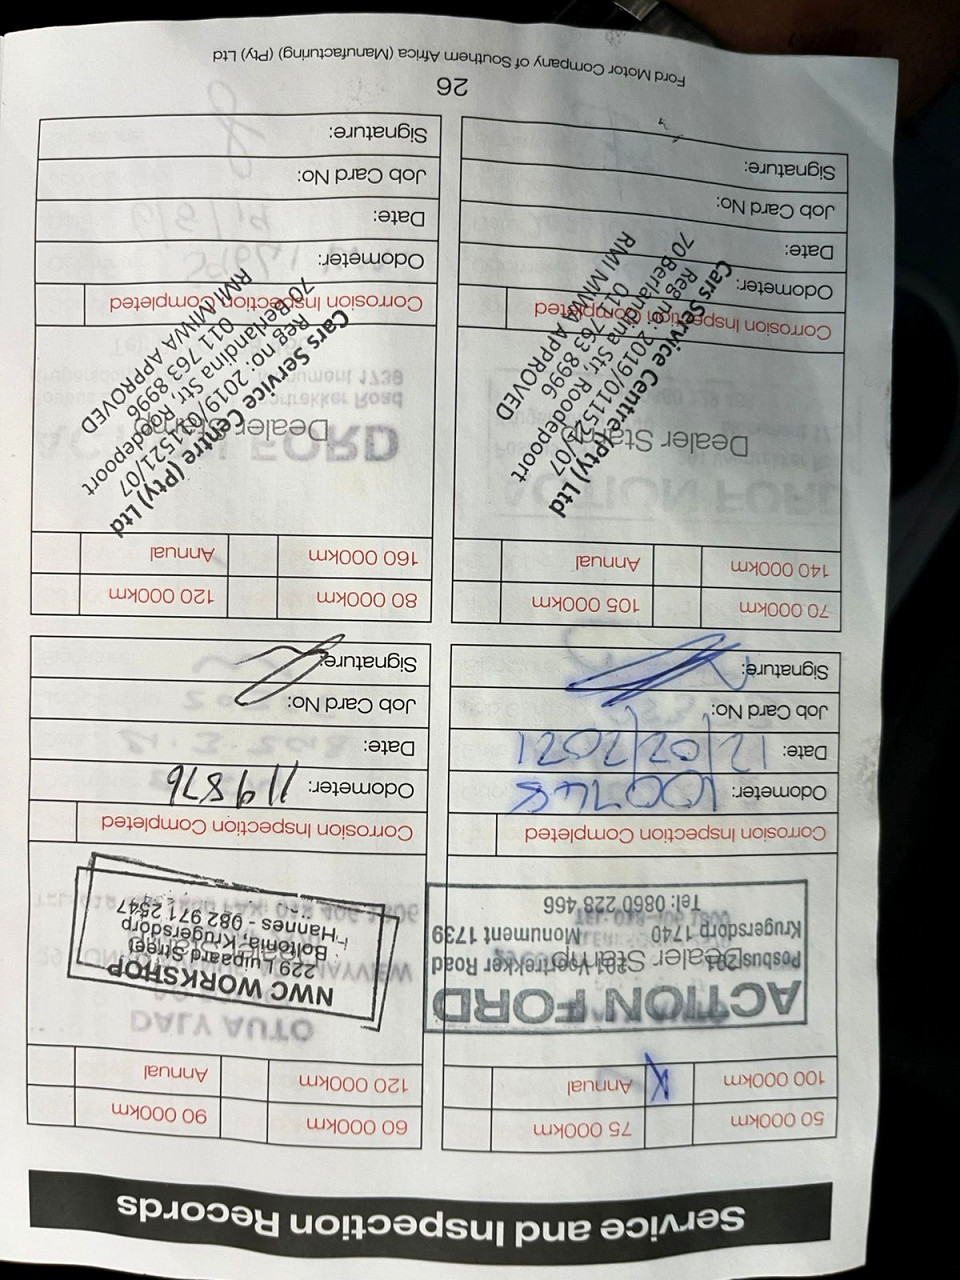 Service and Inspection Records
50 000km
75 000km
100 000km
X
Annual
ACTION FORD
Posbus/201
201 Voortrekker Road
Krugersdorp 1740
Monument 1739
Tel: 0860 228 466
Dealer Stamp
Corrosion Inspection Completed
Odometer: 100748
Date: 12/02/2021
Job Card No:
Signature:
60 000km
90 000km
120 000km
Annual
NWC WORKSHOP
229 Luipaard Street
Boltonia-Krugersdorp
Hannes - 082 971 2547
Corrosion Inspection Completed
Odometer: 119876
Date:
Job Card No:
Signature:
70 000km
105 000km
140 000km
Annual
Dealer Stamp
Cars Service Centre (Pty) Ltd
Reg no: 2019/031521/07
70 Berlandina Str, Roodepoort
011 763 8996
RMI MIWA APPROVED
Corrosion Inspection Completed
Odometer:
Date:
Job Card No:
Signature:
80 000km
120 000km
160 000km
Annual
Dealer Stamp
Cars Service Centre (Pty) Ltd
Reg no: 2019/031521/07
70 Berlandina Str, Roodepoort
011 763 8996
RMI MIWA APPROVED
Corrosion Inspection Completed
Odometer:
Date:
Job Card No:
Signature:
26
Ford Motor Company of Southern Africa (Manufacturing) (Pty) Ltd